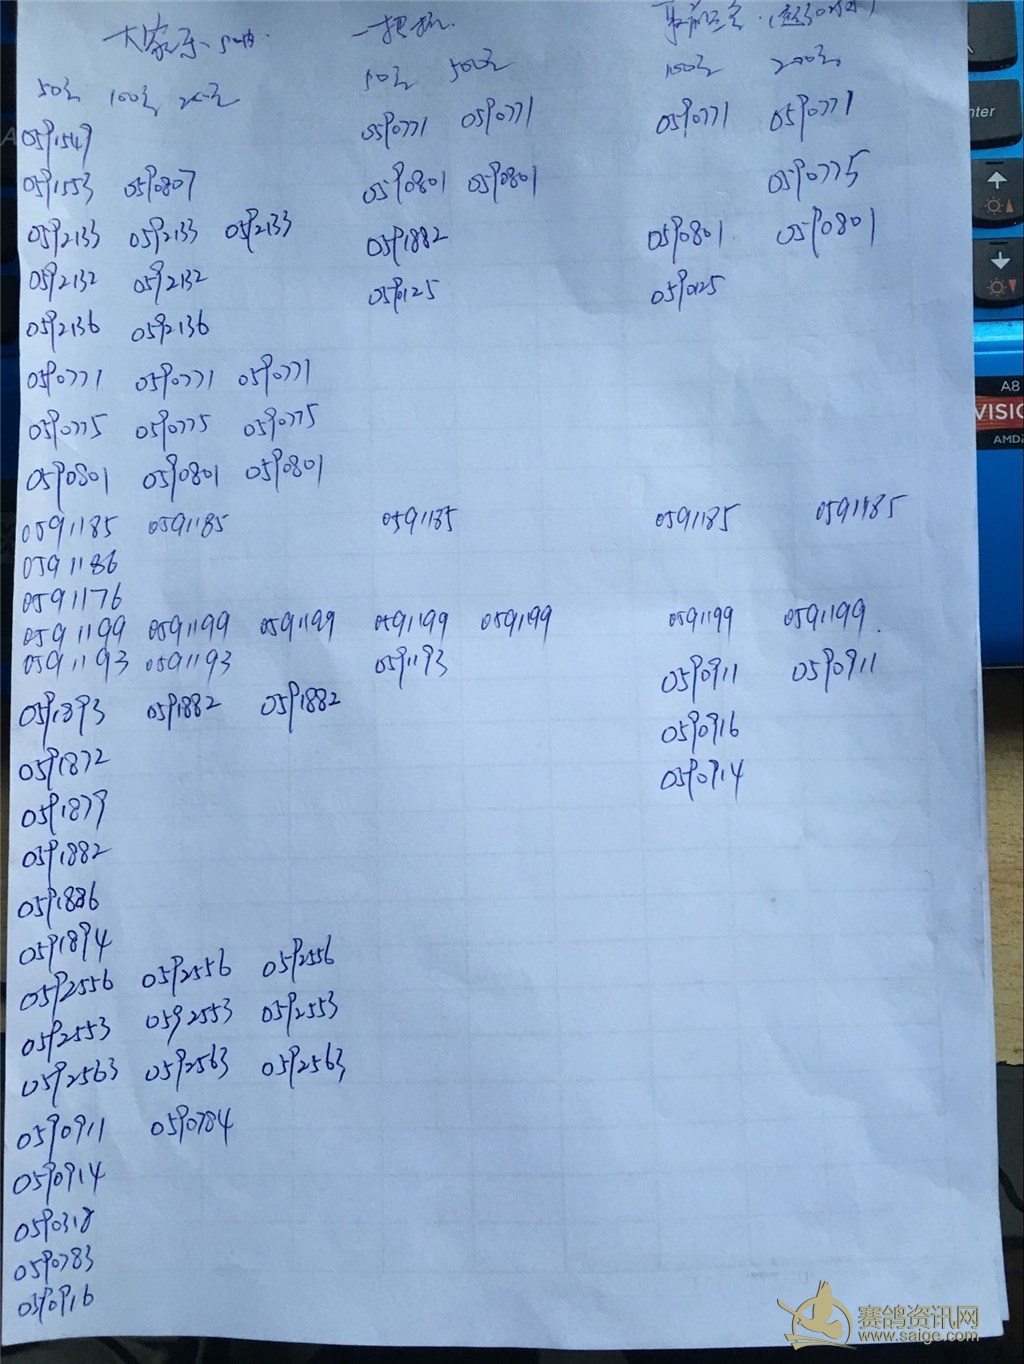 大家乐 一把抓
50元 100元 200元 50元 500元 100元 200元
0591549 0590771 0590771 0590771 0590771
0591553 0590807 0590801 0590801 0590775
0592133 0592133 0592133 0591882 0590801 0590801
0592132 0592132 0590125 0590125
0592136 0592136
0590771 0590771 0590771
0590775 0590775 0590775
0590801 0590801 0590801
0591185 0591185 0591185 0591185 0591185
0591186
0591176
0591199 0591199 0591199 0591199 0591199 0591199 0591199
0591193 0591193 0591193 0590911 0590911
0591893 0591882 0591882 0590916
0591872 0590914
0591879
0591882
0591886
0591894
0592556 0592556 0592556
0592553 0592553 0592553
0592563 0592563 0592563
0590911 0590784
0590914
0590318
0590783
0590916
A8
VISIO
AMD
赛鸽资讯网
www.saige.com